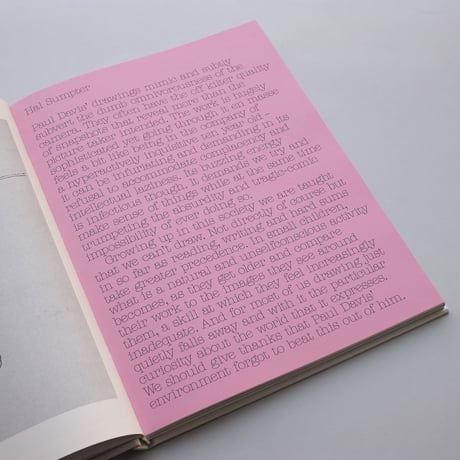 Hal Sumpter
Paul Davis' drawings mimic and subtly
subvert the dumb omnivorousness of the
camera. They often have the off kilter quality
of snapshots that reveal more than the
picture taker intended. The work is hugely
sophisticated yet going through it en masse
feels a bit like being in the company of
a hyperactively inquisitive ten year old –
it can be infuriating and demanding in its
refusal to accommodate complacency and
intellectual laziness. Its puzzling energy
is infectious though. It demands we try and
make sense of things while at the same time
trumpeting the absurdity and tragic-comic
impossibility of ever doing so.
Growing up in this society we are taught
that we can't draw. Not directly of course but
in so far as reading, writing and hard sums
take greater precedence. In small children,
what is a natural and unselfconscious activity
becomes, as they get older and compare
their work to the images they see around
them, a skill at which they feel increasingly
inadequate. And for most of us drawing just
quietly falls away and with it the particular
curiosity about the world that it expresses.
We should give thanks that Paul Davis'
environment forgot to beat this out of him.